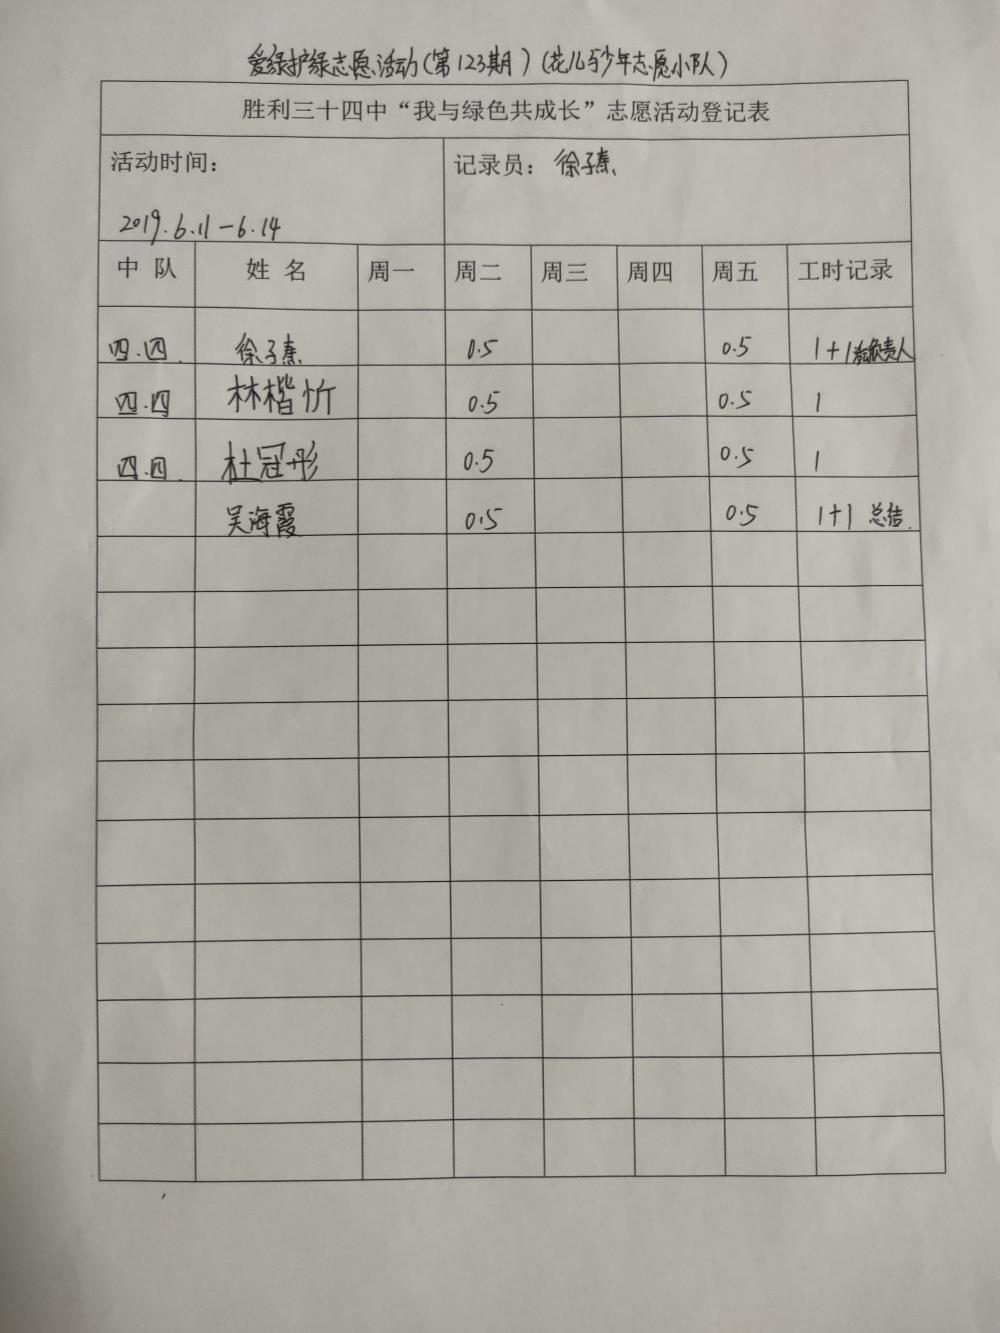 爱绿护绿志愿活动(第123期)(花儿与少年志愿小队)
胜利三十四中“我与绿色共成长”志愿活动登记表
活动时间： 记录员：徐子惠
2019.6.11-6.14
中 队 姓 名 周一 周二 周三 周四 周五 工时记录
四.四. 徐子惠 0.5 0.5 1+1 负责人
四.四 林楷忻 0.5 0.5 1
四.四. 杜冠彤 0.5 0.5 1
吴海霞 0.5 0.5 1+1 总结.